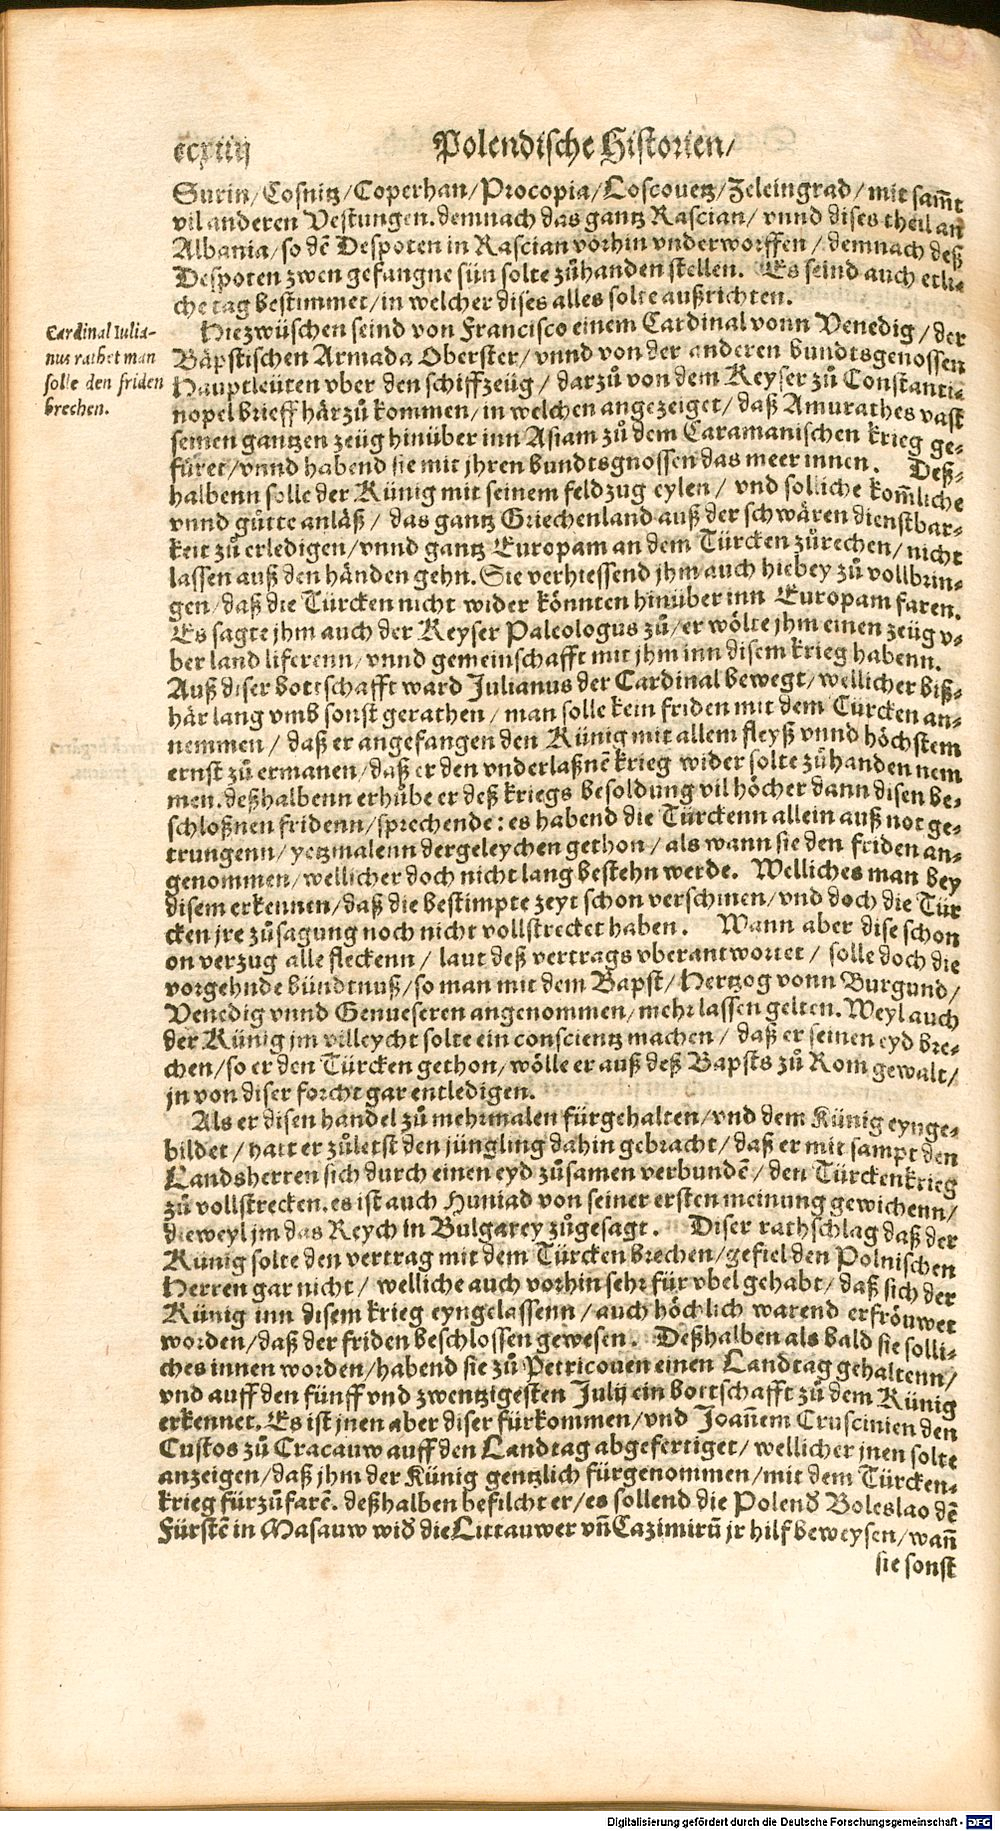 ccxiiij Polendische Historien/
Surin/Cosnitz/Coperhan/Procopia/Loscouetz/Zeleingrad/mit sam̃t
vil anderen Vestungen. demnach das gantz Rascian/vnnd dises theil an
Albania/so dẽ Despoten in Rascian vorhin vnderworffen/demnach deß
Despoten zwen gefangne sün solte zůhanden stellen. Es seind auch etli-
che tag bestimmet/in welcher dises alles solte außrichten.
Cardinal Iulia-
nus rathet man
solle den friden
brechen.
Hiezwüschen seind von Francisco einem Cardinal vonn Venedig/der
Bäpstischen Armada Oberster/vnnd von der anderen bundtsgenossen
Hauptleüten vber den schiffzeüg/darzů von dem Keyser zů Constanti-
nopel brieff härzů kommen/in welchen angezeiget/daß Amurathes vast
seinen gantzen zeüg hinüber inn Asiam zů dem Caramanischen krieg ge-
füret/vnnd habend sie mit jhren bundtsgnossen das meer innen. Deß-
halbenn solle der Künig mit seinem feldzug eylen/vnd solliche kom̃liche
vnnd gůtte anläß/das gantz Griechenland auß der schwären dienstbar-
keit zů erledigen/vnnd gantz Europam an dem Türcken zürechen/nicht
lassen auß den händen gehn. Sie verhiessend jhm auch hiebey zů vollbrin-
gen/daß die Türcken nicht wider könnten hinüber inn Europam faren.
Es sagte jhm auch der Keyser Paleologus zů/er wölte jhm einen zeüg v-
ber land liferenn/vnnd gemeinschafft mit jhm inn disem krieg habenn.
Auß diser bottschafft ward Julianus der Cardinal bewegt/wellicher biß-
här lang vmb sonst gerathen/man solle kein friden mit dem Türcken an-
nemmen/daß er angefangen den Künig mit allem fleyß vnnd höchstem
ernst zů ermanen/daß er den vnderlaßnẽ krieg wider solte zůhanden nem
men. deßhalbenn erhübe er deß kriegs besoldung vil höcher dann disen be-
schloßnen fridenn/sprechende: es habend die Türckenn allein auß not ge-
trungenn/yetzmalenn dergeleychen gethon/als wann sie den friden an-
genommen/wellicher doch nicht lang bestehn werde. Welliches man bey
disem erkennen/daß die bestimpte zeyt schon verschinen/vnd doch die Tür
cken jre zůsagung noch nicht vollstrecket haben. Wann aber dise schon
on verzug alle fleckenn/laut deß vertrags vberantwortet/solle doch die
vorgehnde bündtnuß/so man mit dem Bapst/Hertzog vonn Burgund/
Venedig vnnd Genueseren angenommen/mehr lassen gelten. Weyl auch
der Künig jm villeycht solte ein conscientz machen/daß er seinen eyd bre-
chen/so er den Türcken gethon/wölle er auß deß Bapsts zů Rom gewalt/
jn von diser forcht gar entledigen.
Als er disen handel zů mehrmalen fürgehalten/vnd dem Künig eynge-
bildet/hatt er zůletst den jüngling dahin gebracht/daß er mit sampt den
Landsherren sich durch einen eyd zůsamen verbundẽ/den Türckenkrieg
zů vollstrecken. es ist auch Huniad von seiner ersten meinung gewichenn/
dieweyl jm das Reych in Bulgarey zůgesagt. Diser rathschlag daß der
Künig solte den vertrag mit dem Türcken brechen/gefiel den Polnischen
Herren gar nicht/welliche auch vorhin sehr für vbel gehabt/daß sich der
Künig inn disem krieg eyngelassenn/auch höchlich warend erfröuwet
worden/daß der friden beschlossen gewesen. Deßhalben als bald sie solli-
ches innen worden/habend sie zů Petricouen einen Landtag gehaltenn/
vnd auff den fünff vnd zwentzigesten Julij ein bottschafft zů dem Künig
erkennet. Es ist jnen aber diser fürkommen/vnd Joañem Cruscinien den
Custos zů Cracauw auff den Landtag abgefertiget/wellicher jnen solte
anzeigen/daß jhm der Künig gentzlich fürgenommen/mit dem Türcken-
krieg fürzůfarẽ. deßhalben befilcht er/es sollend die Polend Boleslao dẽ
Fürstẽ in Masauw wid die Littauwer vñ Cazimirũ jr hilf beweysen/wañ
sie sonst
Digitalisierung gefördert durch die Deutsche Forschungsgemeinschaft - DFG